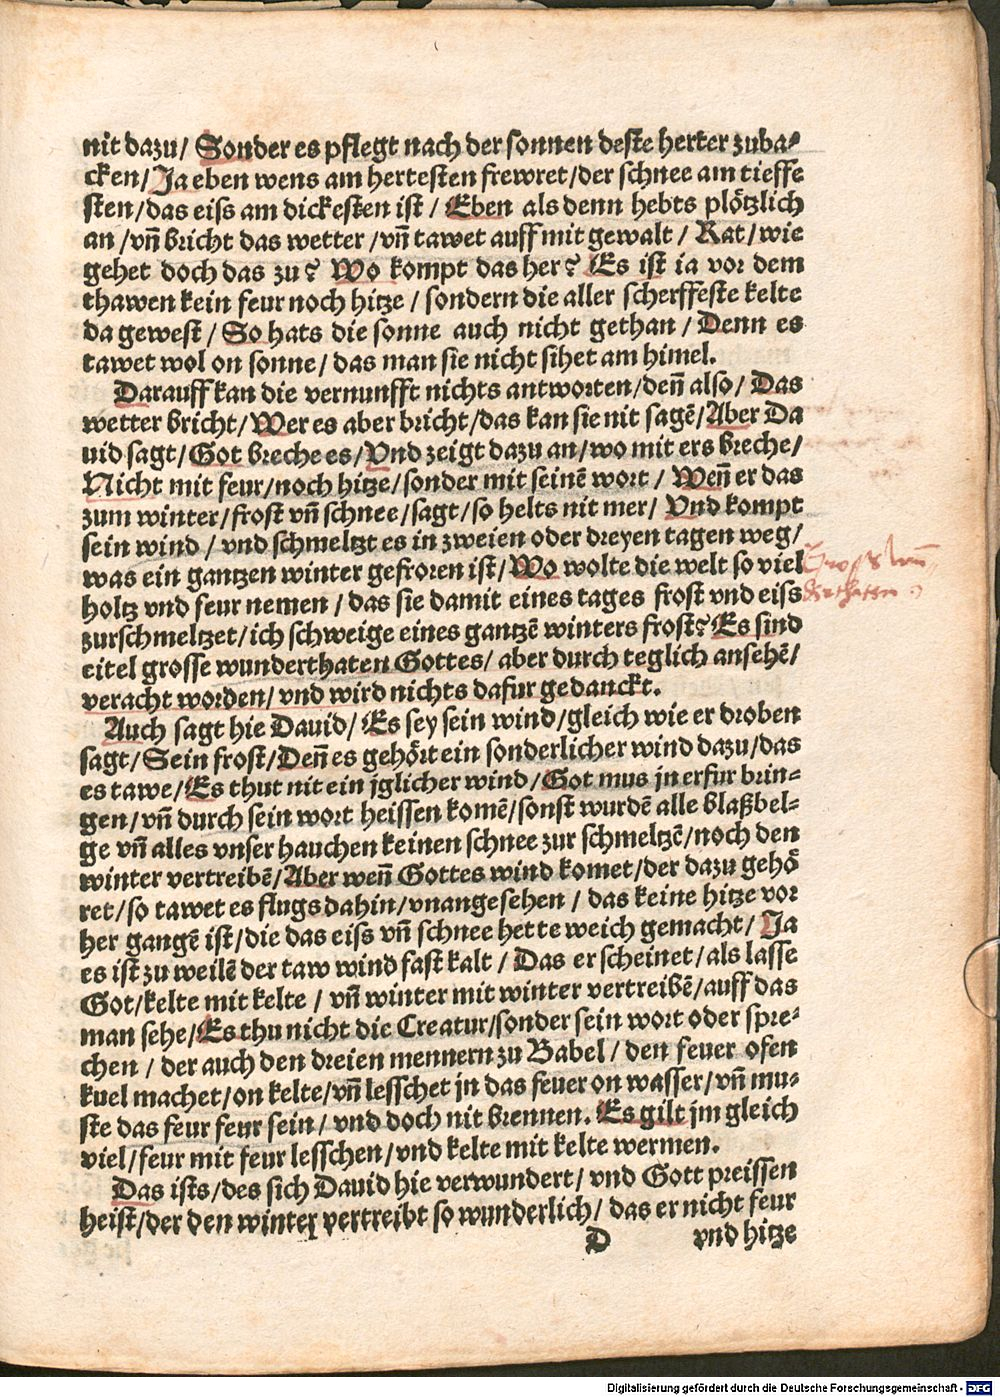 nit dazu/ Sonder es pflegt nach der sonnen deste herter zuba⸗
cken/ Ja eben wens am hertesten frewret/der schnee am tieffe
sten/das eiss am dickesten ist/ Eben als denn hebts plötzlich
an/vn̄ bricht das wetter/vn̄ tawet auff mit gewalt/ Rat/wie
gehet doch das zu? Wo kompt das her? Es ist ia vor dem
thawen kein feur noch hitze/sondern die aller scherffeste kelte
da gewest/ So hats die sonne auch nicht gethan/ Denn es
tawet wol on sonne/das man sie nicht sihet am himel.
Darauff kan die vernunfft nichts antworten/den̄ also/ Das
wetter bricht/ Wer es aber bricht/das kan sie nit sagē/Aber Da
uid sagt/ Got breche es/ Vnd zeigt dazu an/wo mit ers breche/
Nicht mit feur/noch hitze/sonder mit seinē wort/ Wen̄ er das
zum winter/frost vn̄ schnee/sagt/so helts nit mer/ Vnd kompt
sein wind/vnd schmeltzt es in zweien oder dreyen tagen weg/
was ein gantzen winter gefroren ist/ Wo wolte die welt so viel
holtz vnd feur nemen/das sie damit eines tages frost vnd eiss
zurschmeltzet/ich schweige eines gantzē winters frost? Es sind
eitel grosse wunderthaten Gottes/aber durch teglich ansehē/
veracht worden/vnd wird nichts dafur gedanckt.
Gross wun̄
derthatten
Auch sagt hie Dauid/ Es sey sein wind/gleich wie er droben
sagt/Sein frost/Den̄ es gehört ein sonderlicher wind dazu/das
es tawe/Es thut nit ein jglicher wind/Got mus jn erfur brin⸗
gen/vn̄ durch sein wort heissen komē/sonst wurdē alle blaßbel⸗
ge vn̄ alles vnser hauchen keinen schnee zur schmeltzē/noch den
winter vertreibē/Aber wen̄ Gottes wind komet/der dazu gehö
ret/so tawet es flugs dahin/vnangesehen/das keine hitze vor
her gangē ist/die das eiss vn̄ schnee hette weich gemacht/ Ja
es ist zu weilē der taw wind fast kalt/ Das er scheinet/als lasse
Got/kelte mit kelte/vn̄ winter mit winter vertreibē/auff das
man sehe/Es thu nicht die Creatur/sonder sein wort oder spre⸗
chen/der auch den dreien mennern zu Babel/den feuer ofen
kuel machet/on kelte/vn̄ lesschet jn das feuer on wasser/vn̄ mu⸗
ste das feur feur sein/vnd doch nit brennen. Es gilt jm gleich
viel/feur mit feur lesschen/vnd kelte mit kelte wermen.
Das ists/des sich Dauid hie verwundert/vnd Gott preissen
heist/der den winter vertreibt so wunderlich/das er nicht feur
D vnd hitze
Digitalisierung gefördert durch die Deutsche Forschungsgemeinschaft - DFG